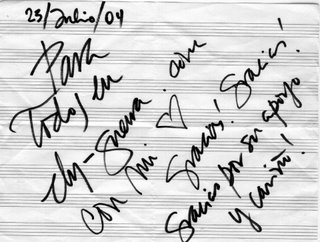 25/Julio/04
Para
Todos en
ely-guerra.com
con mi ♡
Gracias! Gracias!
Gracias por su apoyo
y cariño!